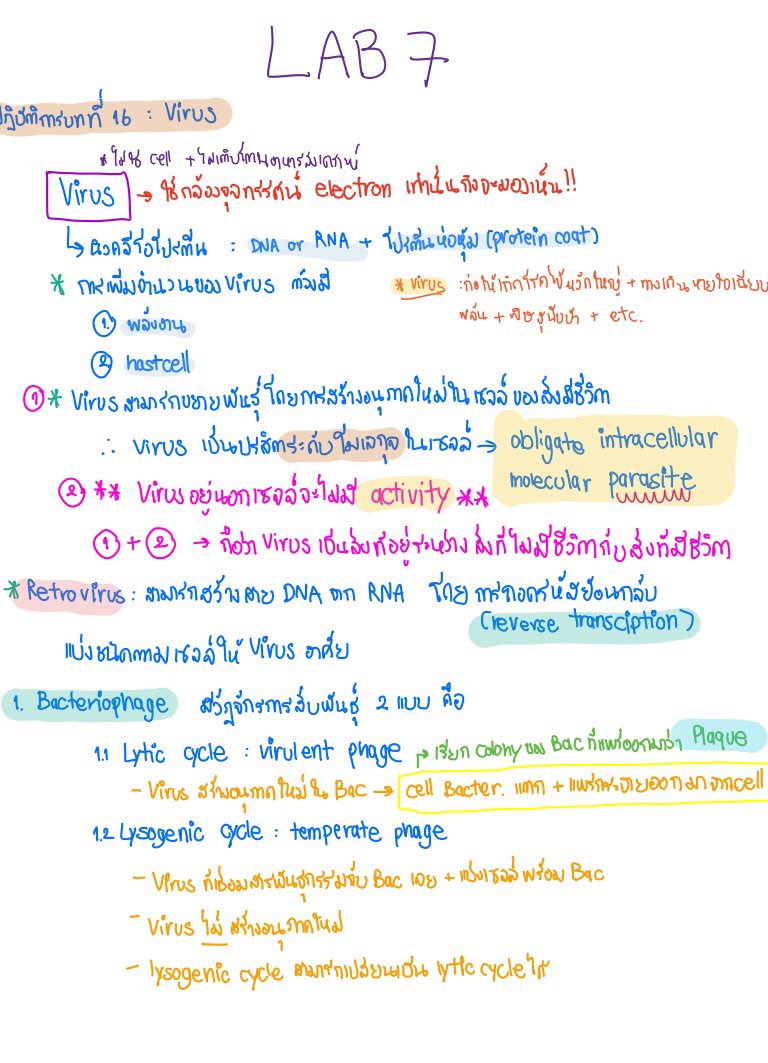 LAB 7
ปฏิบัติการบทที่ 16 : Virus
* ไม่ใช่ cell + ไม่
Virus → ใช้กล้องจุลทรรศน์ electron เท่านั้นถึงจะมองเห็น!!
↳ นิวคลีโอโปรตีน : DNA or RNA + โปรตีนห่อหุ้ม (protein coat)
* การเพิ่มจำนวนของ Virus ต้องมี
* virus : ก่อให้เกิดโรคไข้หวัดใหญ่ + ทางเดินหายใจเฉียบ
พลัน + พิษสุนัขบ้า + etc.
① พลังงาน
② hostcell
① * Virus สามารถขยายพันธุ์โดยการสร้างอนุภาคใหม่ในเซลล์ของสิ่งมีชีวิต
∴ Virus เป็นปรสิตระดับโมเลกุลในเซลล์ → obligate intracellular
molecular parasite
② ** Virus อยู่นอกเซลล์จะไม่มี activity **
① + ② → ถือว่า Virus เป็นสิ่งที่อยู่ระหว่าง สิ่งที่ไม่มีชีวิตกับสิ่งที่มีชีวิต
* Retrovirus : สามารถสร้างสาย DNA จาก RNA โดย การถอดรหัสย้อนกลับ
(reverse transciption)
แบ่งชนิดตามเซลล์ให้ Virus อาศัย
1. Bacteriophage มีวัฏจักรการสืบพันธุ์ 2 แบบ คือ
1.1 Lytic cycle : virulent phage → เรียก colony ของ Bac ที่แพร่ออกมาว่า Plaque
- Virus สร้างอนุภาคใหม่ใน Bac → cell Bacter. แตก + แพร่กระจายออกมาจาก cell
1.2 Lysogenic cycle : temperate phage
- Virus ที่เชื่อมสารพันธุกรรมกับ Bac เลย + แบ่งเซลล์พร้อม Bac
- Virus ไม่ สร้างอนุภาคใหม่
- lysogenic cycle สามารถเปลี่ยนเป็น lytic cycle ได้